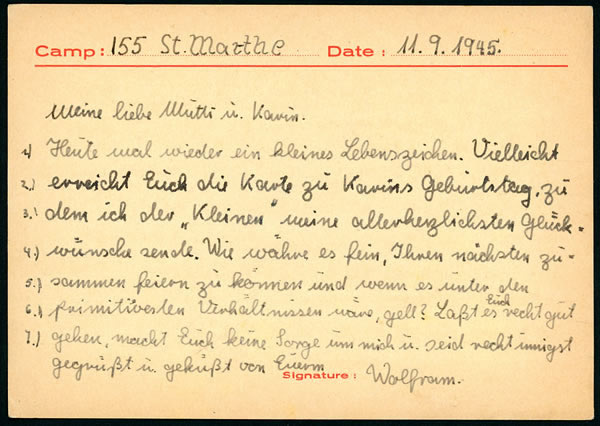 Camp: 155 St. Marthe Date: 11.9.1945.
Meine liebe Mutti u. Karin.
1.) Heute mal wieder ein kleines Lebenszeichen. Vielleicht
2.) erreicht Euch die Karte zu Karins Geburtstag, zu
3.) dem ich der „Kleinen" meine allerherzlichsten Glück-
4.) wünsche sende. Wie währe es fein, Ihren nächsten zu-
5.) sammen feiern zu können und wenn es unter den
6.) primitivesten Verhältnissen wäre, gell? Laßt es Euch recht gut
7.) gehen, macht Euch keine Sorge um mich u. seid recht innigst
gegrüßt u. geküßt von Euerm
Signature: Wolfram.